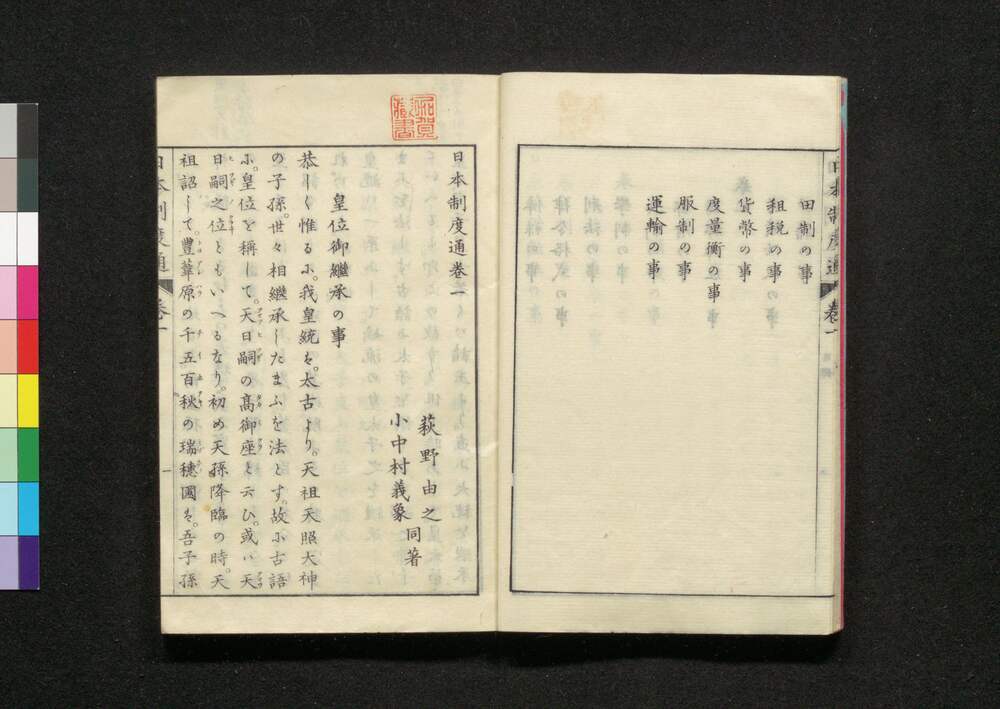 田制の事
租税の事
貨幣の事
度量衡の事
服制の事
運輸の事
日本制度通卷一
萩野由之
小中村義象
同著
皇位御繼承の事
恭しく惟るに。我皇統は。太古より。天祖天照大神
の子孫。世々相繼承したまふを法とす。故に古語
に。皇位を稱して。天日嗣の高御座と云ひ。或は天
日嗣之位ともいへるなり。初め天孫降臨の時。天
祖詔して。豐葦原の千五百秋の瑞穗國は。吾子孫
日本制度通
卷一
一